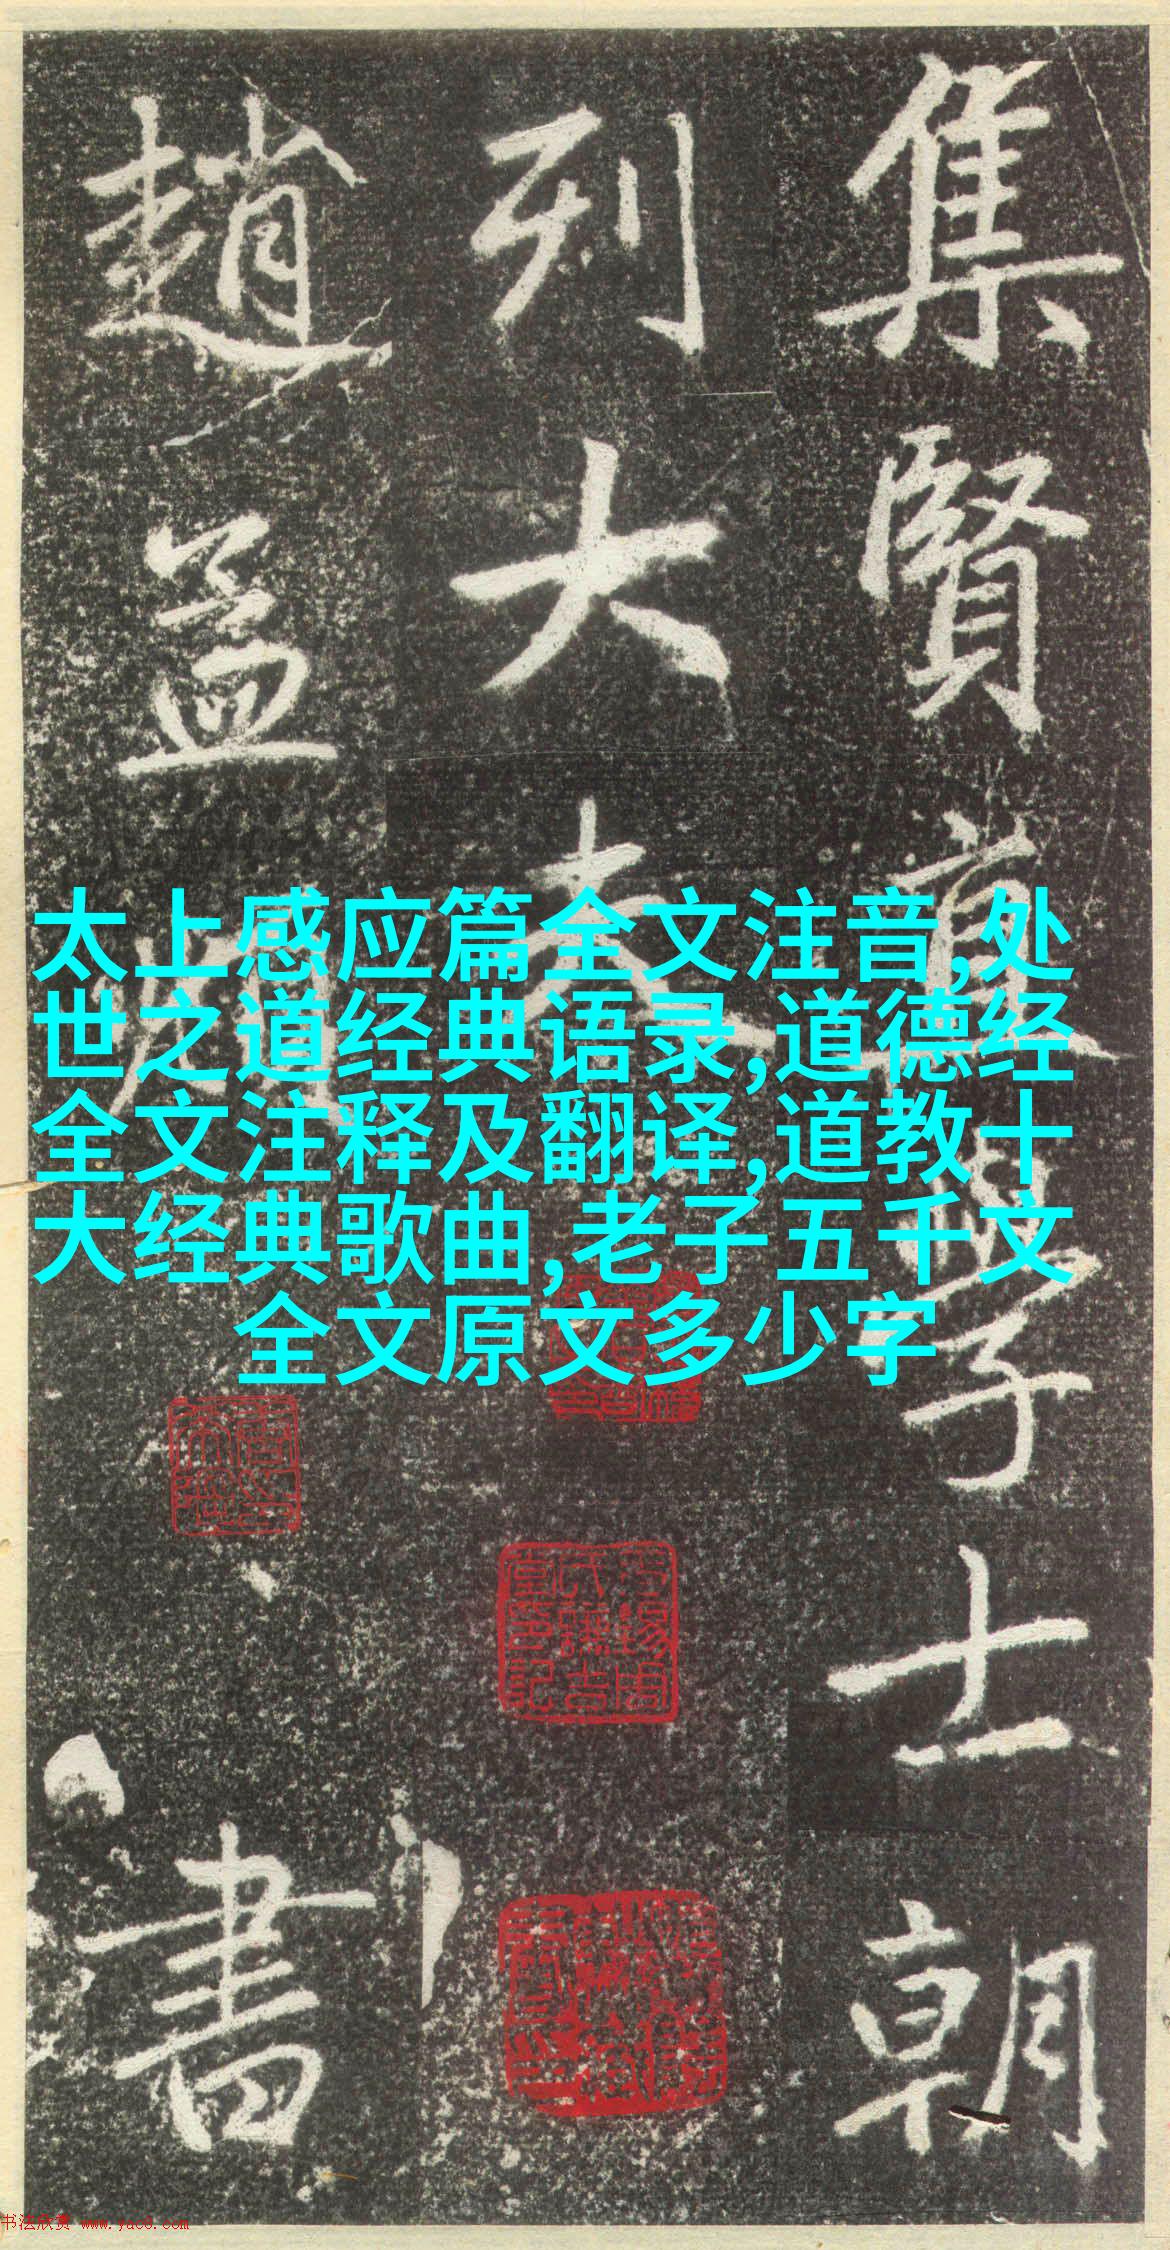 集賢直學士朝
列大夫
趙孟頫
書
太上感应篇全文注音,处
世之道经典语录,道德经
全文注释及翻译,道教十
大经典歌曲,老子五千文
全文原文多少字
书法欣赏 www.yac8.com